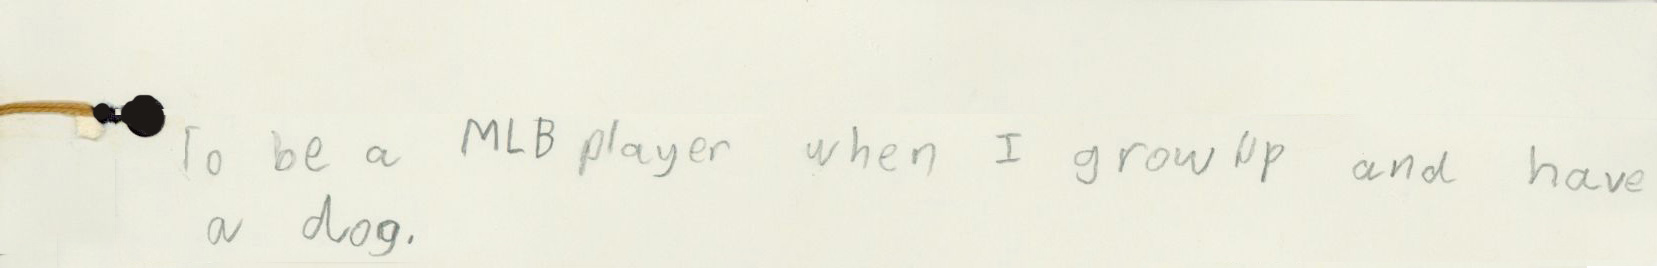 To be a MLB player when I grow up and have
a dog.